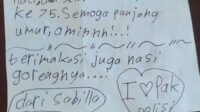 ke 75. Semoga panjang
umur, aminhh!..!
terimakasi juga nasi
goreagnya....
dari Sabilla
I ♡ Pak
polisi